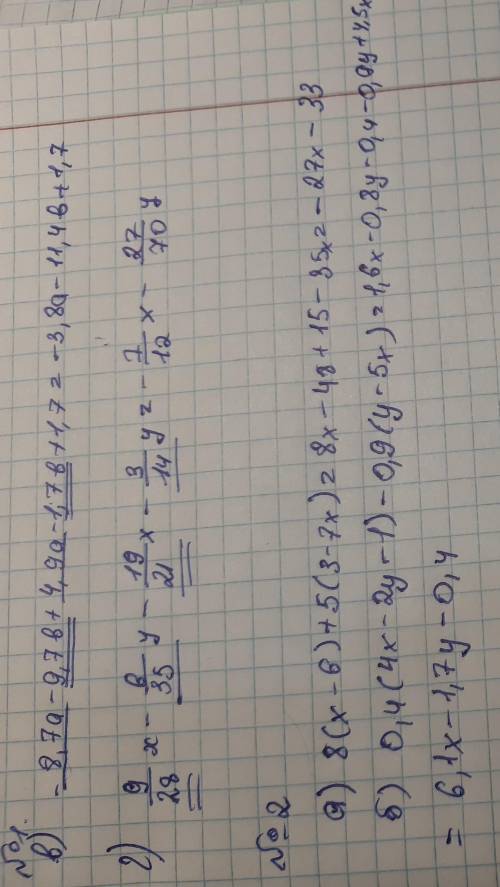 №1.
в) -8,7a-9,7в+4,9a-1,7в+1,7=-3,8a-11,4в+1,7
г) 9/28 x - 6/35 y - 19/21 x - 3/14 y = - 7/12 x - 27/70 y
№2
а) 8(x-6)+5(3-7x)=8x-48+15-35x=-27x-33
б) 0,4(4x-2y-1)-0,9(y-5x)=1,6x-0,8y-0,4-0,9y+4,5x
= 6,1x-1,7y-0,4